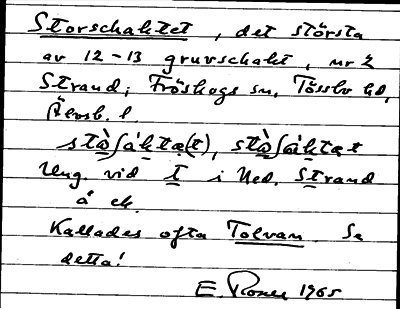 Storschaktet, det största
av 12-13 gruvschakt, nr 2
Strand, Fröskogs sn, Tössbo hd,
Älvsb. l.
stò̱ʃák̠ta(t), stò̱ʃák̠tat
Ung. vid t i Ned. Strand
å ek.
Kallades ofta Tolvan. Se
detta!
E. 1965